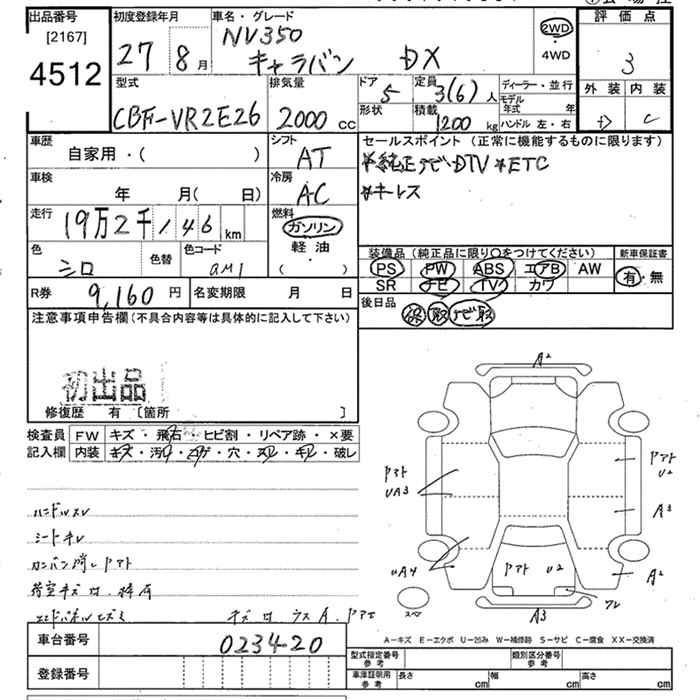 出品番号
[2167]
4512
初度登録年月
27年8月
車名・グレード
NV350
キャラバン DX
2WD
・
4WD
評価点
3
外装 内装
D C
型式
CBF-VR2E26
排気量
2000 cc
ドア
5
形状
定員
3(6)人
積載
1200 kg
ディーラー・並行
モデル年式 年
ハンドル 左・右
車歴
自家用・( )
シフト
AT
セールスポイント(正常に機能するものに限ります)
*純正ナビ・DTV *ETC
*キーレス
車検
年 月( 日)
冷房
AC
走行
19万2千146 km
燃料
ガソリン
軽油・
( )
色
シロ
色替
色コード
QM1
装備品(純正品に限り○をつけてください)
PS PW ABS エアB AW
SR ナビ TV カワ
新車保証書
有・無
R券 9,160円
名変期限 月 日
後日品
保 取 ナビ取
注意事項申告欄(不具合内容等は具体的に記入して下さい)
初出品
修復歴 有 〔箇所 〕
検査員記入欄
FW キズ・飛石・ヒビ割・リペア跡・×要
内装 キズ・汚れ・コゲ・穴・スレ・キレ・破レ
ハンドルスレ
シートキレ
カンバン消しアト
荷室キズ凹、
A2
アト
UA3
UA4
アト
U2
A3
A2
アト U2
ワレ
A3
スペア
車台番号 0234-20
登録番号
A-キズ E-エクボ U-凹み W-補修跡 S-サビ C-腐食 XX-交換済
型式指定番号 参考
類別区分番号 参考
車庫証明用 参考
長さ cm
幅 cm
高さ cm